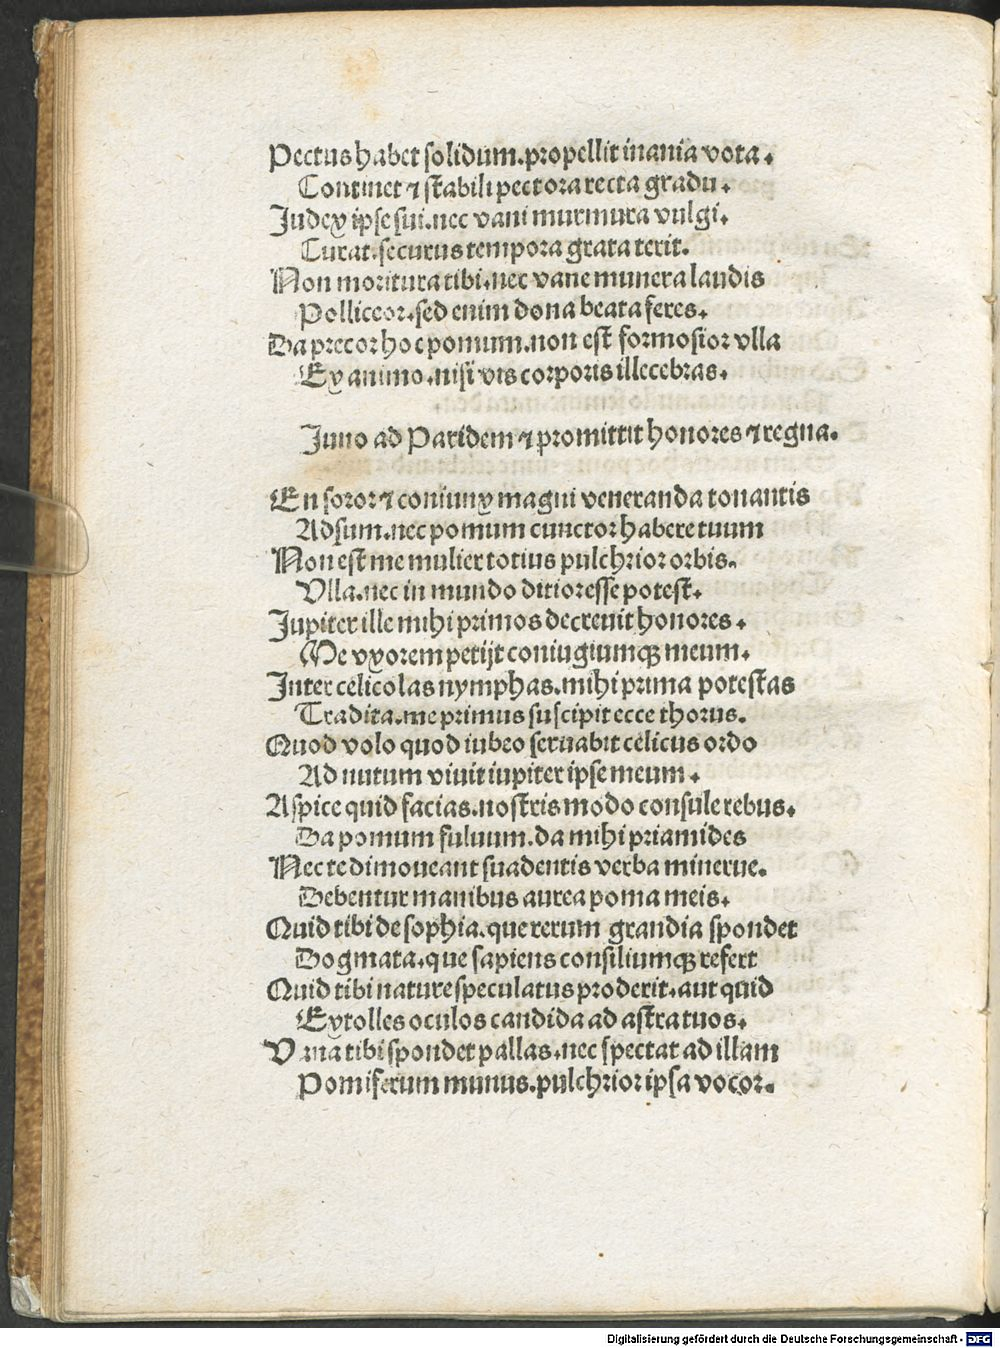 Pectus habet solidum. propellit inania vota.
Continet ⁊ stabili pectora recta gradu.
Judex ipse sui. nec vani murmura vulgi.
Curat. securus tempora grata terit.
Non moritura tibi. nec vane munera laudis
Polliceor. sed enim dona beata feres.
Da precor hoc pomum. non est formosior vlla
Ex animo. nisi vis corporis illecebras.
Juno ad Paridem ⁊ promittit honores ⁊ regna.
En soror ⁊ coniunx magni veneranda tonantis
Adsum. nec pomum cunctor habere tuum
Non est me mulier totius pulchrior orbis.
Vlla. nec in mundo ditior esse potest.
Jupiter ille mihi primos decreuit honores.
Me vxorem petijt coniugiumqꝫ meum.
Inter celicolas nymphas. mihi prima potestas
Tradita. me primus suscipit ecce thorus.
Quod volo quod iubeo seruabit celicus ordo
Ad nutum viuit iupiter ipse meum.
Aspice quid facias. nostris modo consule rebus.
Da pomum fuluum. da mihi priamides
Nec te dimoueant suadentis verba minerue.
Debentur manibus aurea poma meis.
Quid tibi de sophia. que rerum grandia spondet
Dogmata. que sapiens consiliumqꝫ refert
Quid tibi nature speculatus proderit. aut quid
Extolles oculos candida ad astra tuos.
Vana tibi spondet pallas. nec spectat ad illam
Pomiferum munus. pulchrior ipsa vocor.
Digitalisierung gefördert durch die Deutsche Forschungsgemeinschaft - DFG